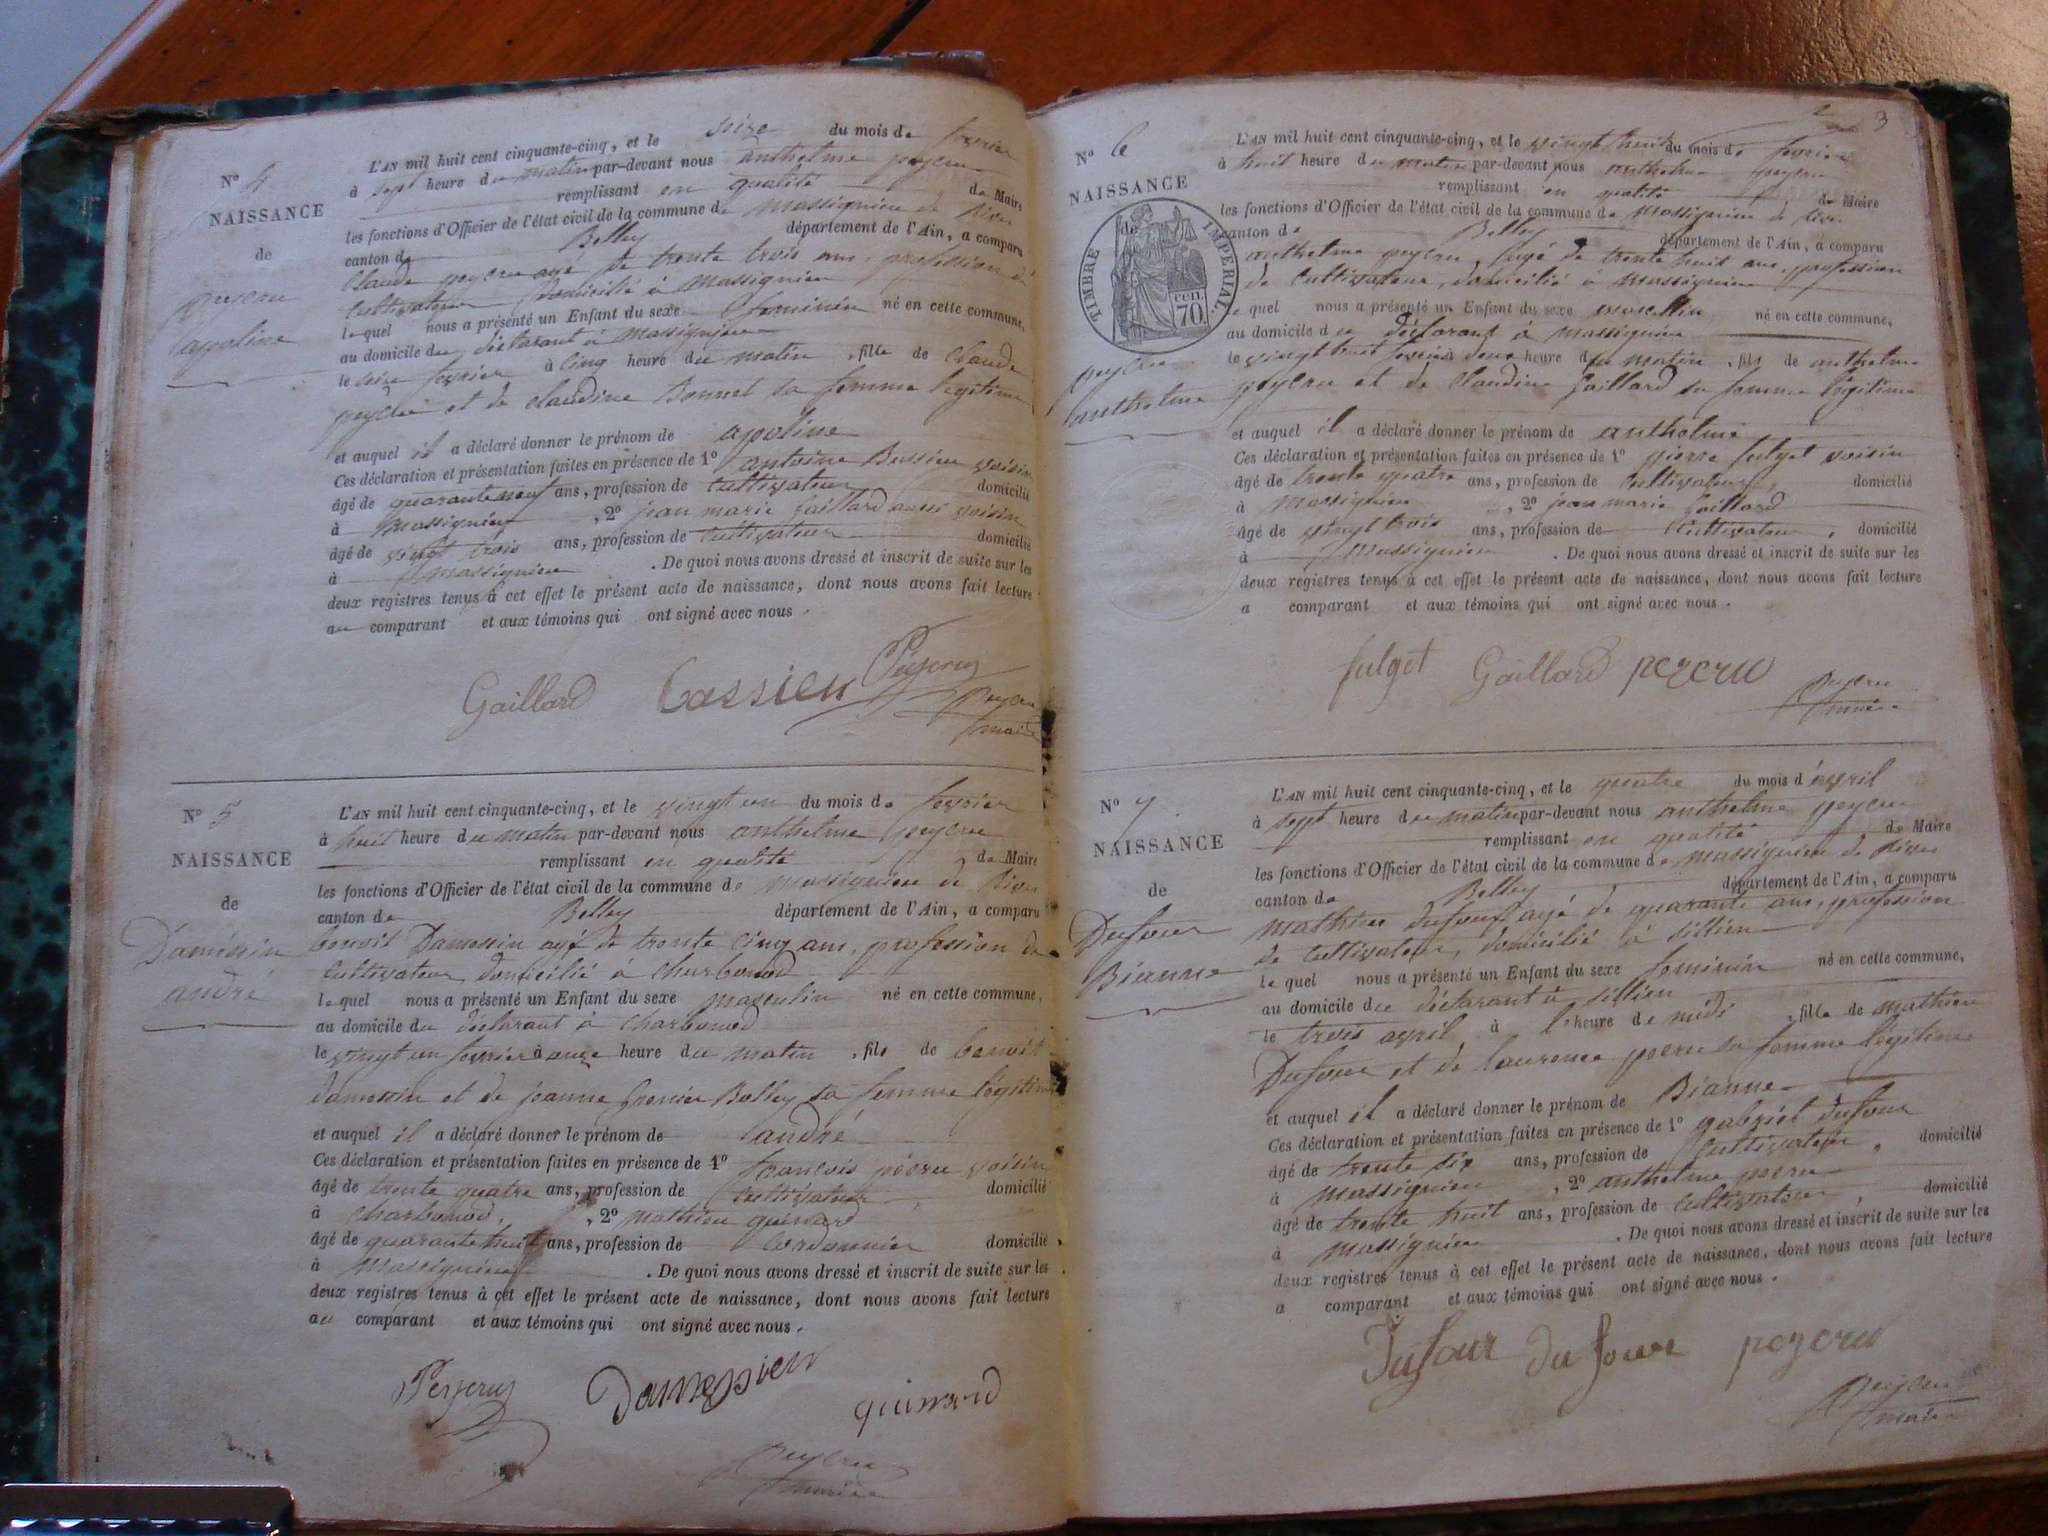 N° 4
NAISSANCE
de
peyeru
apoline
L'AN mil huit cent cinquante-cinq, et le seize du mois de fevrier
à sept heure du matin par-devant nous anthelme peyeru
remplissant en qualité de Maire
les fonctions d'Officier de l'état civil de la commune de Massignieu de Rives
canton de Belley département de l'Ain, a comparu
Claude peyeru agé de trente trois ans, profession de
Cultivateur domicilié à Massignieu
lequel nous a présenté un Enfant du sexe feminin né en cette commune,
au domicile du déclarant à Massignieu
le seize fevrier à cinq heure du matin, fille de Claude
peyeru et de claudine Bonnet sa femme légitime
et auquel il a déclaré donner le prénom de apoline
Ces déclaration et présentation faites en présence de 1° antoine voisin
âgé de quarante neuf ans, profession de Cultivateur domicilié
à Massignieu, 2° jean marie Gaillard aussi voisin
âgé de vingt trois ans, profession de Cultivateur domicilié
à Massignieu. De quoi nous avons dressé et inscrit de suite sur les
deux registres tenus à cet effet le présent acte de naissance, dont nous avons fait lecture
au comparant et aux témoins qui ont signé avec nous.
Gaillard Cassien
Peyeru
maire
N° 5
NAISSANCE
de
Daméssin
andré
L'AN mil huit cent cinquante-cinq, et le vingt un du mois de fevrier
à huit heure du matin par-devant nous anthelme peyeru
remplissant en qualité de Maire
les fonctions d'Officier de l'état civil de la commune de Massignieu de Rives
canton de Belley département de l'Ain, a comparu
benoit Damessin agé de trente cinq ans, profession de
Cultivateur domicilié à Charbonod
lequel nous a présenté un Enfant du sexe masculin né en cette commune,
au domicile du déclarant à Charbonod
le vingt un fevrier à heure du matin, fils de benoit
Damessin et de jeanne grenier Belley sa femme légitime
et auquel il a déclaré donner le prénom de andré
Ces déclaration et présentation faites en présence de 1° francois péseru voisin
âgé de trente quatre ans, profession de Cultivateur domicilié
à Charbonod, 2° mathieu
âgé de quarante huit ans, profession de Cordonnier domicilié
à Massignieu. De quoi nous avons dressé et inscrit de suite sur les
deux registres tenus à cet effet le présent acte de naissance, dont nous avons fait lecture
au comparant et aux témoins qui ont signé avec nous.
Damessien
Peyeru
maire
2
3
N° 6
NAISSANCE
de
TIMBRE IMPERIAL.
70 cen.
peyeru
anthelme
L'AN mil huit cent cinquante-cinq, et le vingt huit du mois de fevrier
à huit heure du matin par-devant nous anthelme peyeru
remplissant en qualité de Maire
les fonctions d'Officier de l'état civil de la commune de Massignieu de Rives
canton de Belley département de l'Ain, a comparu
anthelme peyeru, agé de trente huit ans, profession
de Cultivateur, domicilié à Massignieu
lequel nous a présenté un Enfant du sexe masculin né en cette commune,
au domicile du déclarant à Massignieu
le vingt huit fevrier à deux heure du matin, fils de anthelme
peyeru et de Claudine Gaillard sa femme légitime
et auquel il a déclaré donner le prénom de anthelme
Ces déclaration et présentation faites en présence de 1° pierre fulget voisin
âgé de trente quatre ans, profession de Cultivateur, domicilié
à Massignieu, 2° jean marie Gaillard
âgé de vingt trois ans, profession de Cultivateur, domicilié
à Massignieu. De quoi nous avons dressé et inscrit de suite sur les
deux registres tenus à cet effet le présent acte de naissance, dont nous avons fait lecture
a comparant et aux témoins qui ont signé avec nous.
fulget Gaillard pezeru
Peyeru
maire
N° 7
NAISSANCE
de
Dufour
Bianne
L'AN mil huit cent cinquante-cinq, et le quatre du mois d'avril
à sept heure du matin par-devant nous anthelme peyeru
remplissant en qualité de Maire
les fonctions d'Officier de l'état civil de la commune de Massignieu de Rives
canton de Belley département de l'Ain, a comparu
Mathieu Dufour agé de quarante ans, profession
de Cultivateur, domicilié à Sillien
lequel nous a présenté un Enfant du sexe feminin né en cette commune,
au domicile du déclarant à Sillien
le trois avril à l'heure de midi, fille de Mathieu
Dufour et de laurence peseru sa femme légitime
et auquel il a déclaré donner le prénom de Bianne
Ces déclaration et présentation faites en présence de 1° gabriel dufour
âgé de trente six ans, profession de Cultivateur, domicilié
à Massignieu, 2° anthelme peseru
âgé de trente huit ans, profession de Cultivateur, domicilié
à Massignieu. De quoi nous avons dressé et inscrit de suite sur les
deux registres tenus à cet effet le présent acte de naissance, dont nous avons fait lecture
a comparant et aux témoins qui ont signé avec nous.
Dufour du four pezeru
Peyeru
maire